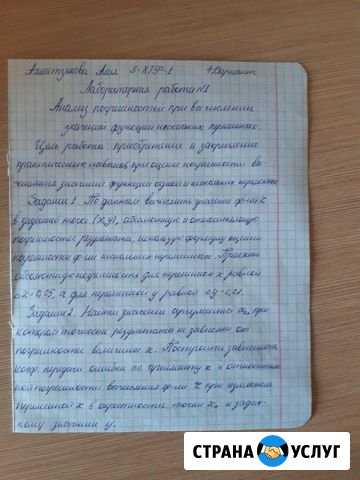 Лабораторная работа №1
Анализ погрешностей при вычислении
значений функции нескольких переменных.
Цель работы: приобретение и закрепление
практических навыков при оценке погрешности вы-
числения значений функций одной и нескольких
Задание 1. По данным вычислить значение ф-ии
в заданной точке (x, y), абсолютную и относительную
погрешности результата, используя формулу оценки
погрешности ф-ии нескольких переменных. Принять
абсолютную погрешность для переменной x равной
а для переменной y равной
Задание 2. Найти значения аргумента x₀, при
котором точность результата не зависит от
погрешности величины x. Построить зависимость
коэф. передачи ошибки по аргументу x и относитель-
ной погрешности вычисления ф-ии z при изменении
переменной x в окрестности точки x₀ и задан-
ному значению y.
СТРАНА УСЛУГ